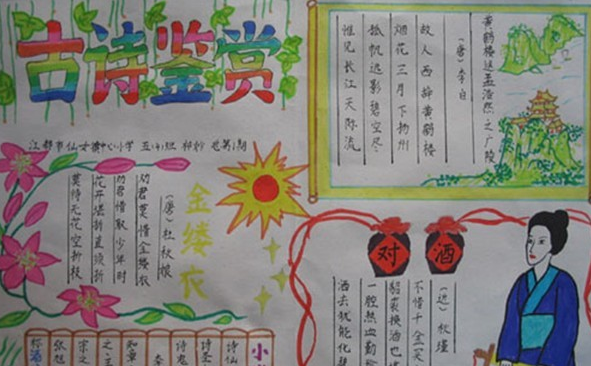 古诗鉴赏
江都市仙女镇中心小学 五(4)班
黄鹤楼送孟浩然之广陵
(唐)李白
故人西辞黄鹤楼
烟花三月下扬州
孤帆远影碧空尽
惟见长江天际流
金缕衣
(唐)杜秋娘
劝君莫惜金缕衣
劝君惜取少年时
花开堪折直须折
莫待无花空折枝
对酒
(近)秋瑾
不惜千金买
貂裘换酒也堪
一腔热血勤珍
洒去犹能化碧
小
诗仙
诗圣
诗鬼
知章
之王
宗之
张旭
称酒